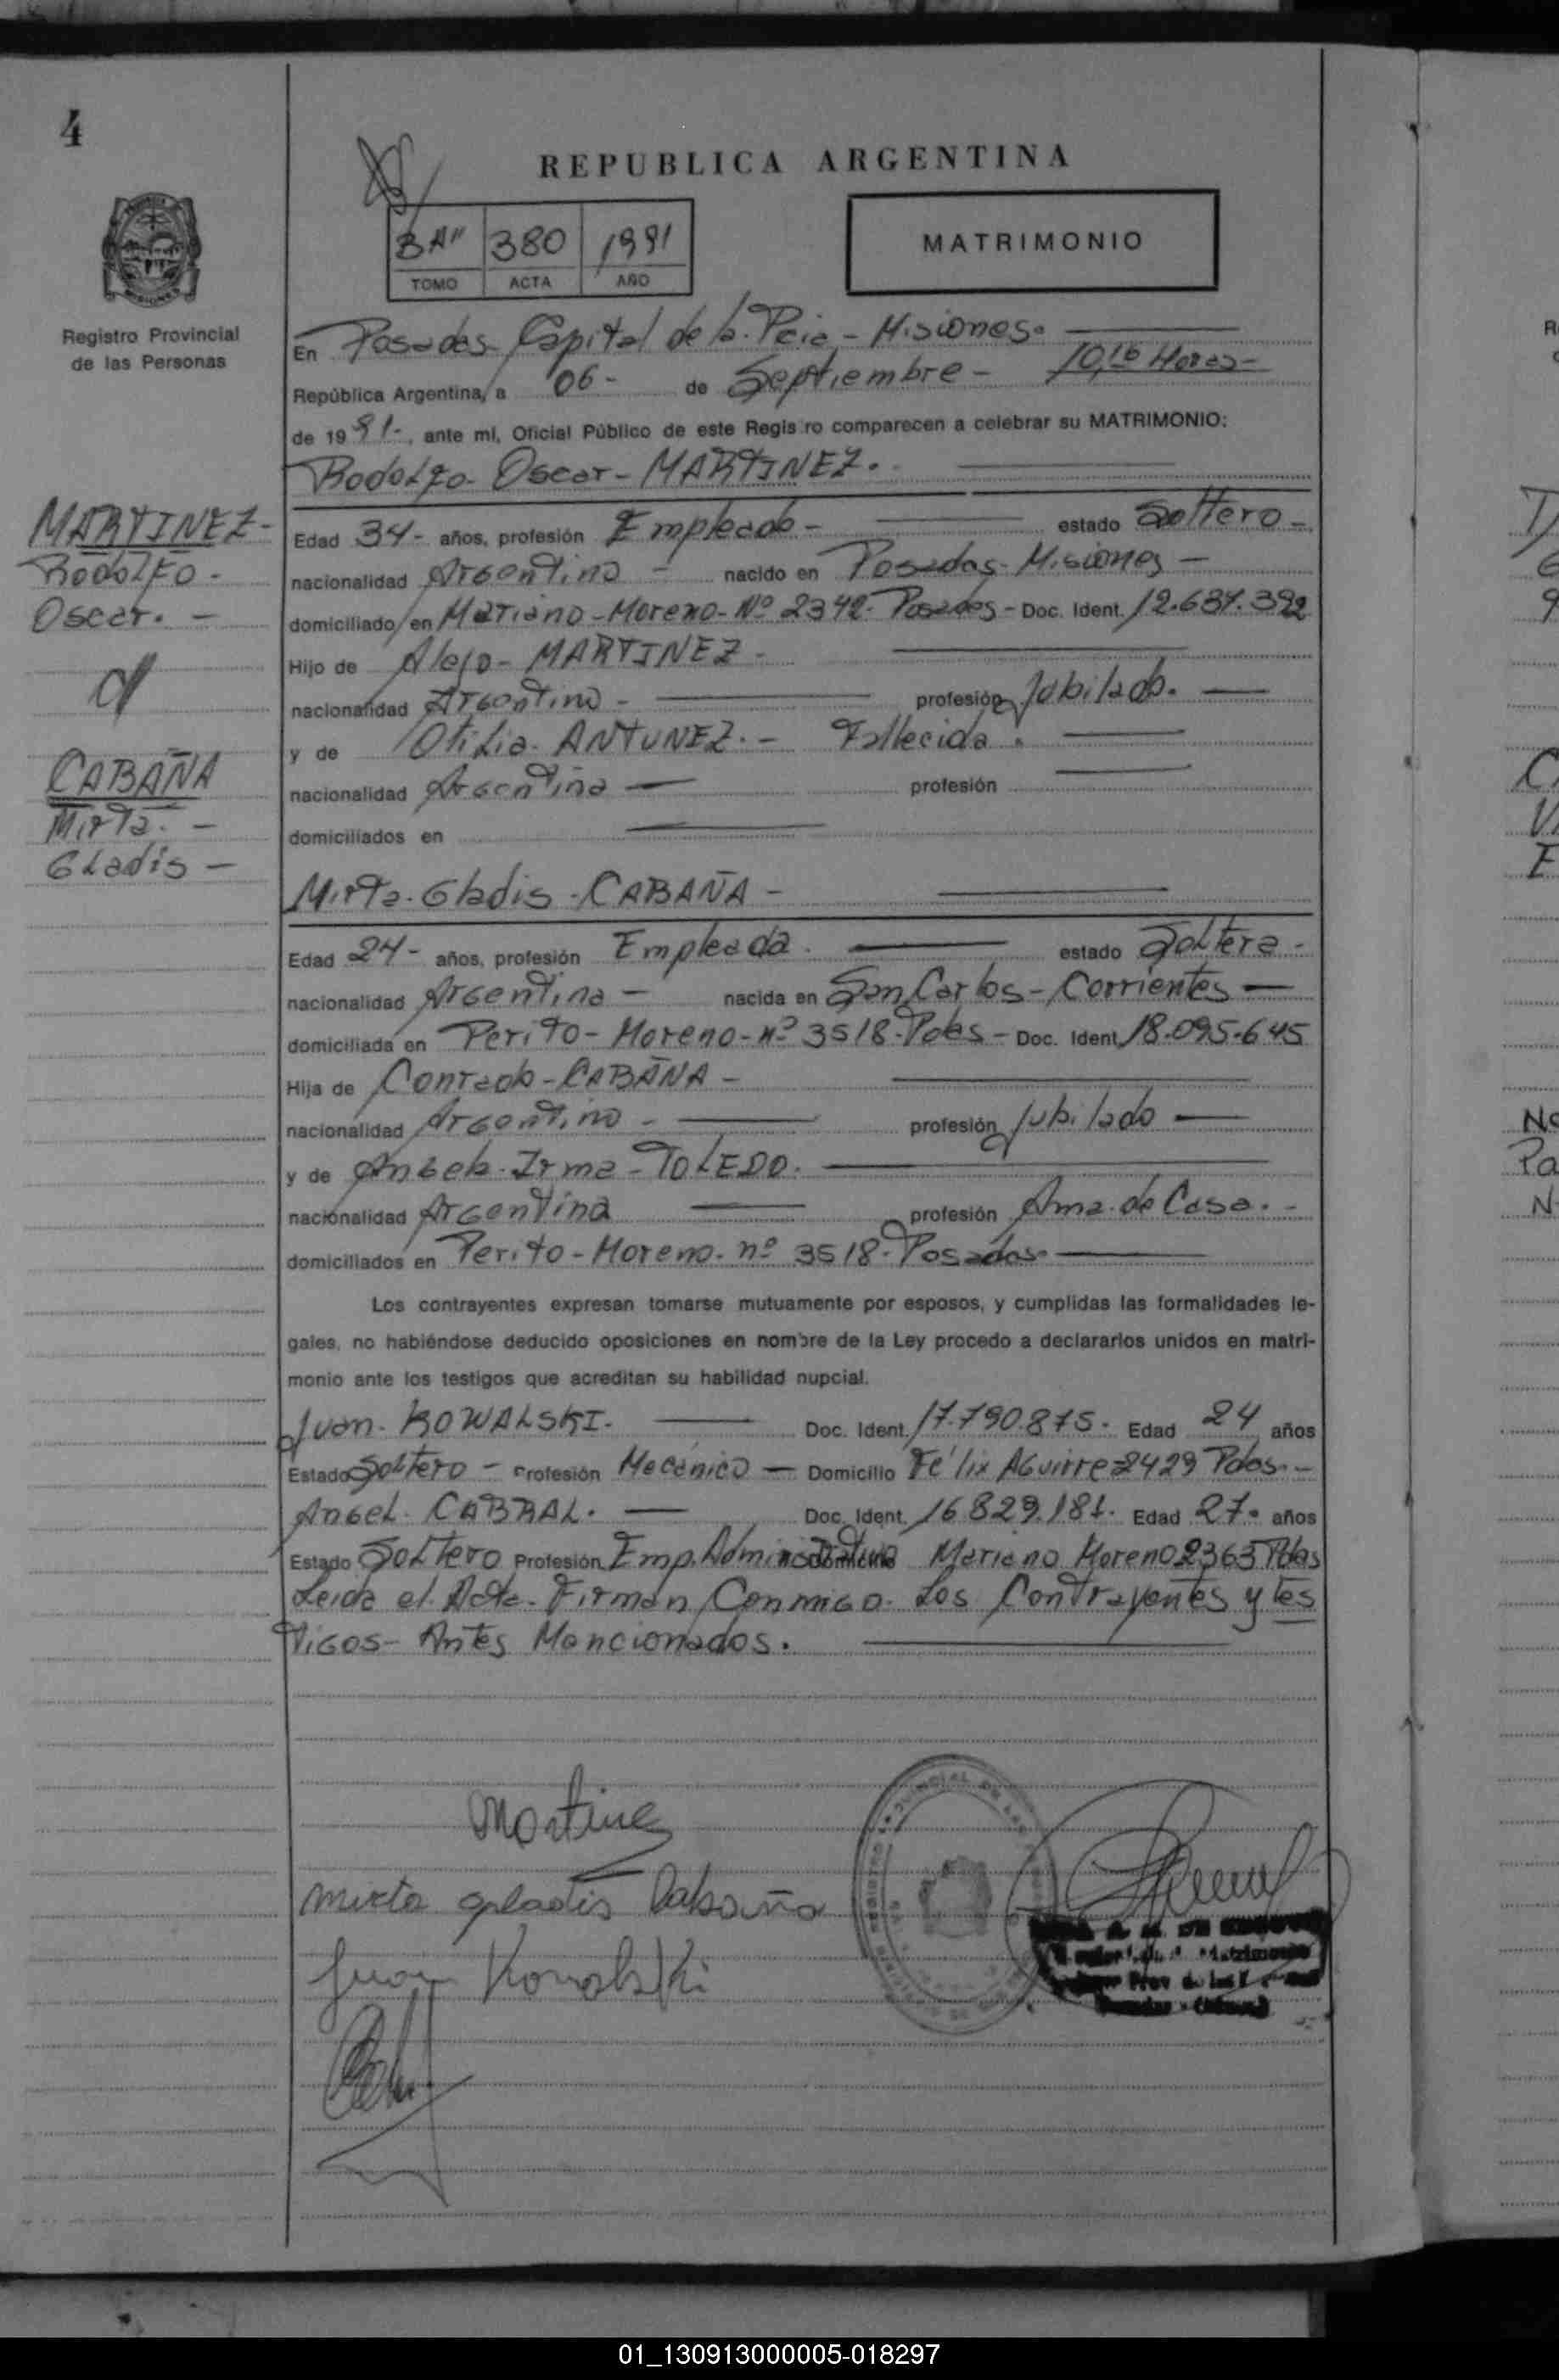 4
REPUBLICA ARGENTINA
3 A" 380 1991
TOMO ACTA AÑO
MATRIMONIO
Registro Provincial
de las Personas
En Posadas Capital de la Pcia - Misiones.
10,16 Horas-
República Argentina, a 06- de Septiembre -
de 1991-, ante mi, Oficial Público de este Registro comparecen a celebrar su MATRIMONIO:
Rodolfo Oscar - MARTINEZ.
MARTINEZ-
Rodolfo-
Oscar. -
Edad 34- años, profesión Empleado - estado Soltero -
nacionalidad Argentina - nacido en Posadas-Misiones -
domiciliado en Mariano-Moreno-Nº 2342-Posadas - Doc. Ident. 12.637.392
Hijo de Alejo-MARTINEZ -
nacionalidad Argentino - profesión Jubilado. -
y de Otilia ANTUNEZ. - Fallecida.
nacionalidad Argentina - profesión
domiciliados en
CABAÑA
Mirta. -
Gladis -
Mirta-Gladis-CABAÑA -
Edad 24- años, profesión Empleada. estado Soltera -
nacionalidad Argentina - nacida en San Carlos - Corrientes -
domiciliada en Perito - Moreno - nº 3518-Pdas - Doc. Ident. 18.095.645
Hija de Conrado-CABAÑA -
nacionalidad Argentino - profesión Jubilado -
y de Angela-Irma-TOLEDO.
nacionalidad Argentina profesión Ama de Casa. -
domiciliados en Perito - Moreno. nº 3518-Posadas
Los contrayentes expresan tomarse mutuamente por esposos, y cumplidas las formalidades le-
gales, no habiéndose deducido oposiciones en nombre de la Ley procedo a declararlos unidos en matri-
monio ante los testigos que acreditan su habilidad nupcial.
Juan. KOWALSKI. Doc. Ident. 17.790.875. Edad 24 años
Estado Soltero - Profesión Mecánico - Domicilio Félix Aguirre 2429 Pdas. -
Angel. CABRAL. - Doc. Ident. 16.829.181. Edad 27. años
Estado Soltero Profesión Emp. Administrativo Domicilio Mariano Moreno 2363 Pdas
Leida el Acta-Firman Conmigo-Los Contrayentes y tes
tigos-Antes Mencionados.
Martinez
Mirta Gladis Cabaña
Juan Kowalski
01_130913000005-018297